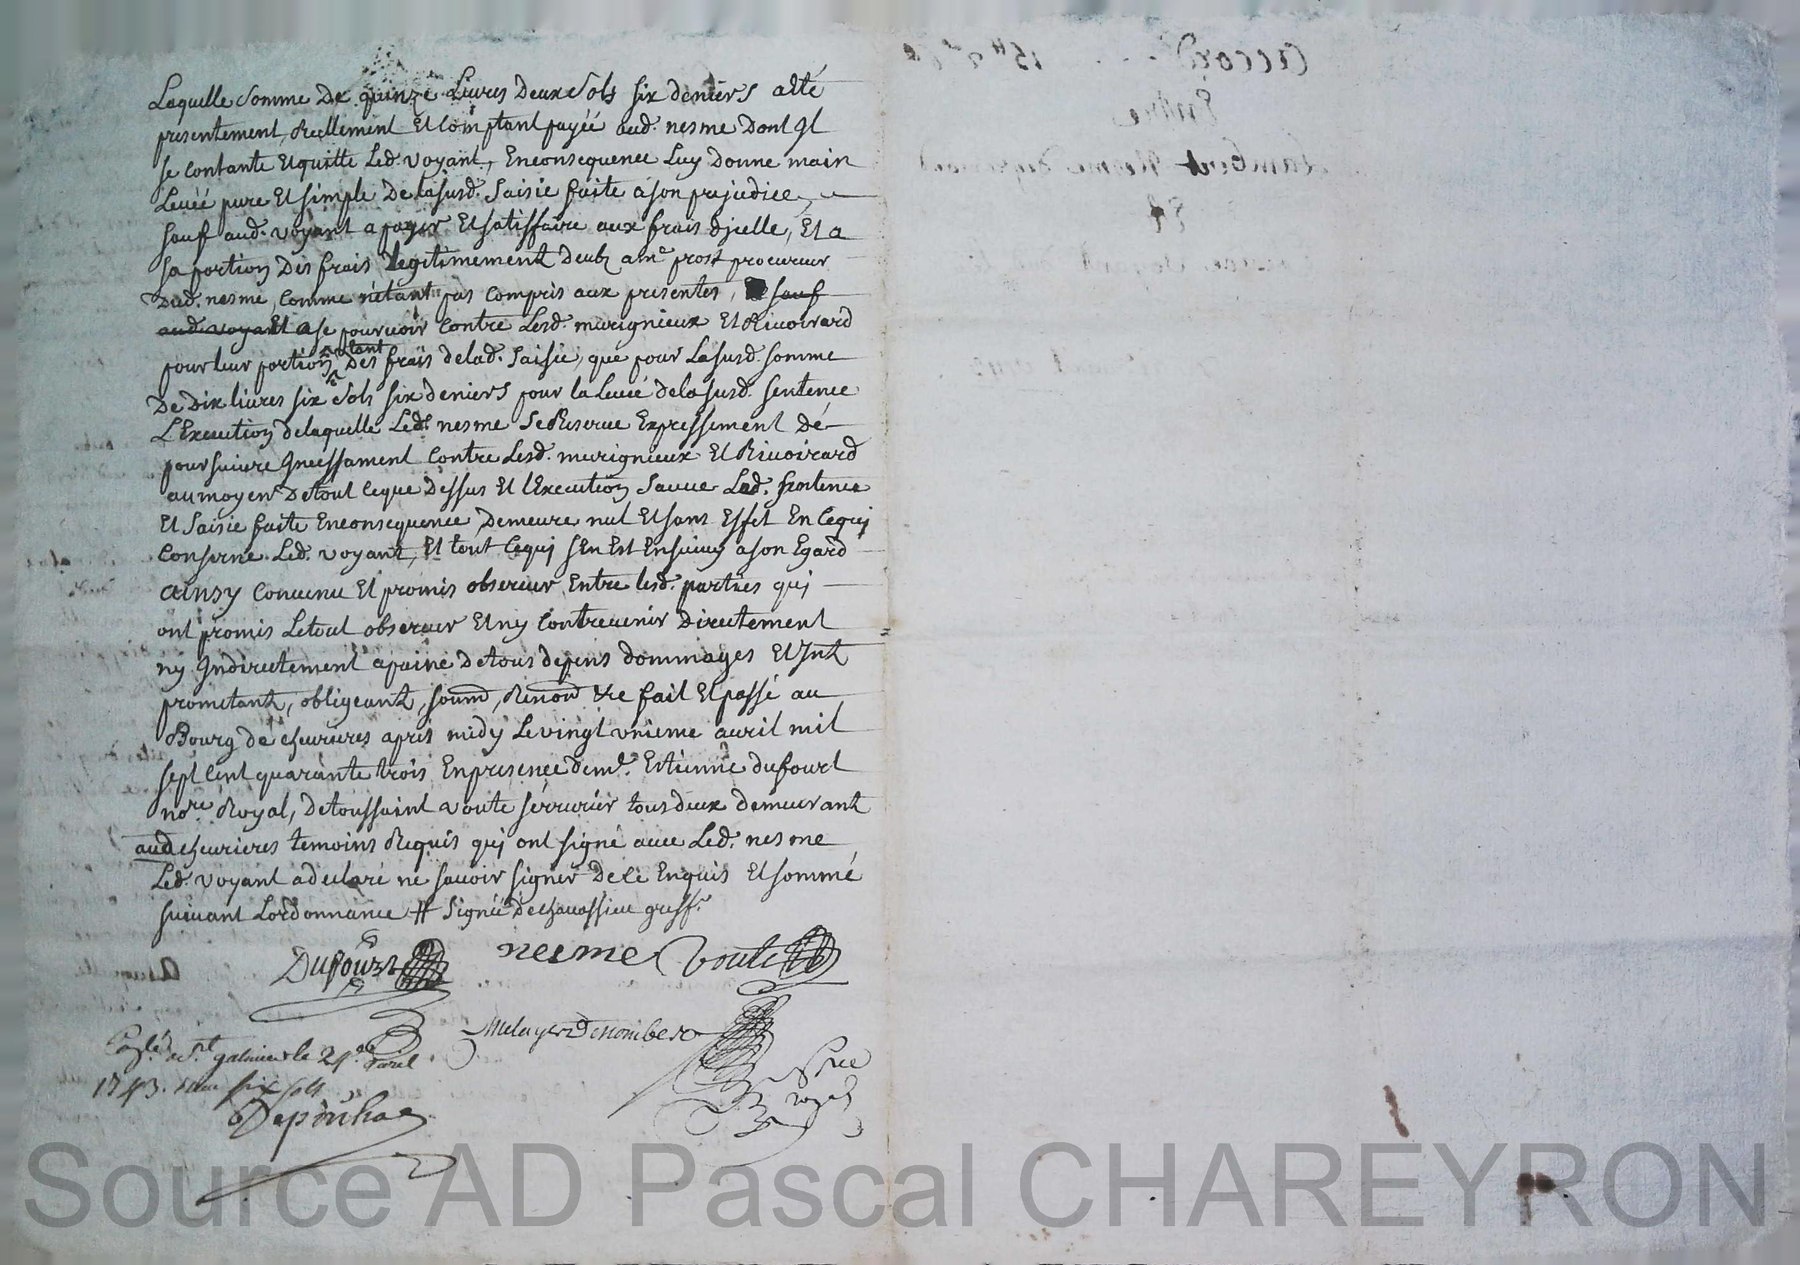 Laquelle somme De quinze Livres Deux sols six deniers a été
presentement, Reellement Et Comptant payéé aud. nesme Dont Il
se contante Et quitte Led. Voyant, En consequence Luy Donne main
Levéé pure Et simple De lasusd. Saisie faite a son prejudice,
sauf aud. voyant a payer Et satisfaire aux frais d'jcelle, Et a
sa portion Des frais Legitimement Deubz a me. prost procureur
Dud. nesme, Comme n'etant pas Compris aux presentes, Et sauf
aud. voyant Et a se pourvoir Contre Lesd. murignieux Et Rivoirard
pour leur portion tant Des frais delad. saisie, que pour Lasusd. somme
De Dix livres six sols six deniers pour la Levéé delasusd. sentence
L'Execution delaquelle Led. nesme se Reserve Expressement De
poursuivre Incessament Contre Lesd. murignieux Et Rivoirard
au moyen De tout Ceque Dessus Et l'Execution sauve Lad. sentence
Et Saisie faite En consequence Demeure nul Et sans Effet En Cequj
Conserne Led. voyant, Et tout Cequj s'En Est Ensuivy a son Egard
ainsy Convenu Et promis observer Entre lesd. parties quj
ont promis Letout observer Et ny Contrevenir Directement
ny Indirectement a paine De tous depens dommages Et Intz
prometantz, obligeantz, soumd, Renond &re fait Et passé au
Bourg de chevrieres apres midy Le vingt vnieme avril mil
sept Cent quarante trois En presence de me. Estienne dufourt
nore. Royal, de toussaint voute serrurier tous deux demeurantz
aud chevrieres temoins Requis quj ont signé avec Led. nesme
Led. voyant a declaré ne savoir signer De Ce Enquis Et sommé
suivant L'ordonnance # Signéé Dechavassieu greffr.
Dufourt nesme Voute
Mulayer Denombero
nre
royal
Conlé. a st. galmier le 24e avril
1743. Reçu six sols
Depouhae
Source AD Pascal CHAREYRON